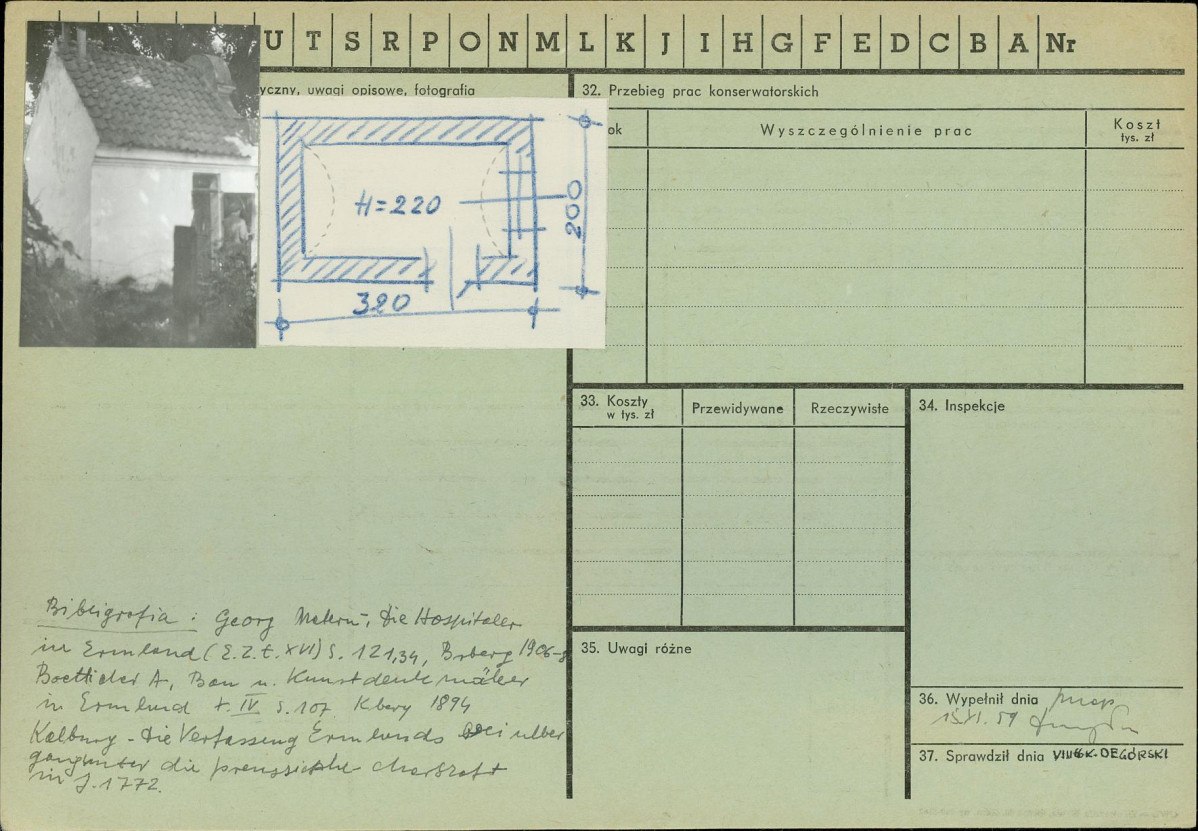 U T S R P O N M L K J I H G F E D C B A Nr
yczny, uwagi opisowe, fotografia
H=220
200
320
32. Przebieg prac konserwatorskich
ok
Wyszczególnienie prac
Koszt
tys. zł
33. Koszty
w tys. zł
Przewidywane
Rzeczywiste
34. Inspekcje
35. Uwagi różne
36. Wypełnił dnia
15.XI.59
37. Sprawdził dnia DEGÓRSKI
Bibligrafia : Georg Matern, Die Hospitaler
in Ermland (E.Z.t. XVI) S. 121,34, Brberg 1906-8
Boetticher A, Bau u. Kunstdenkmäler
in Ermland t. IV S.107 Kberg 1894
Kolberg - Die Verfassung Ermlands bei
die preussische
in J. 1772.